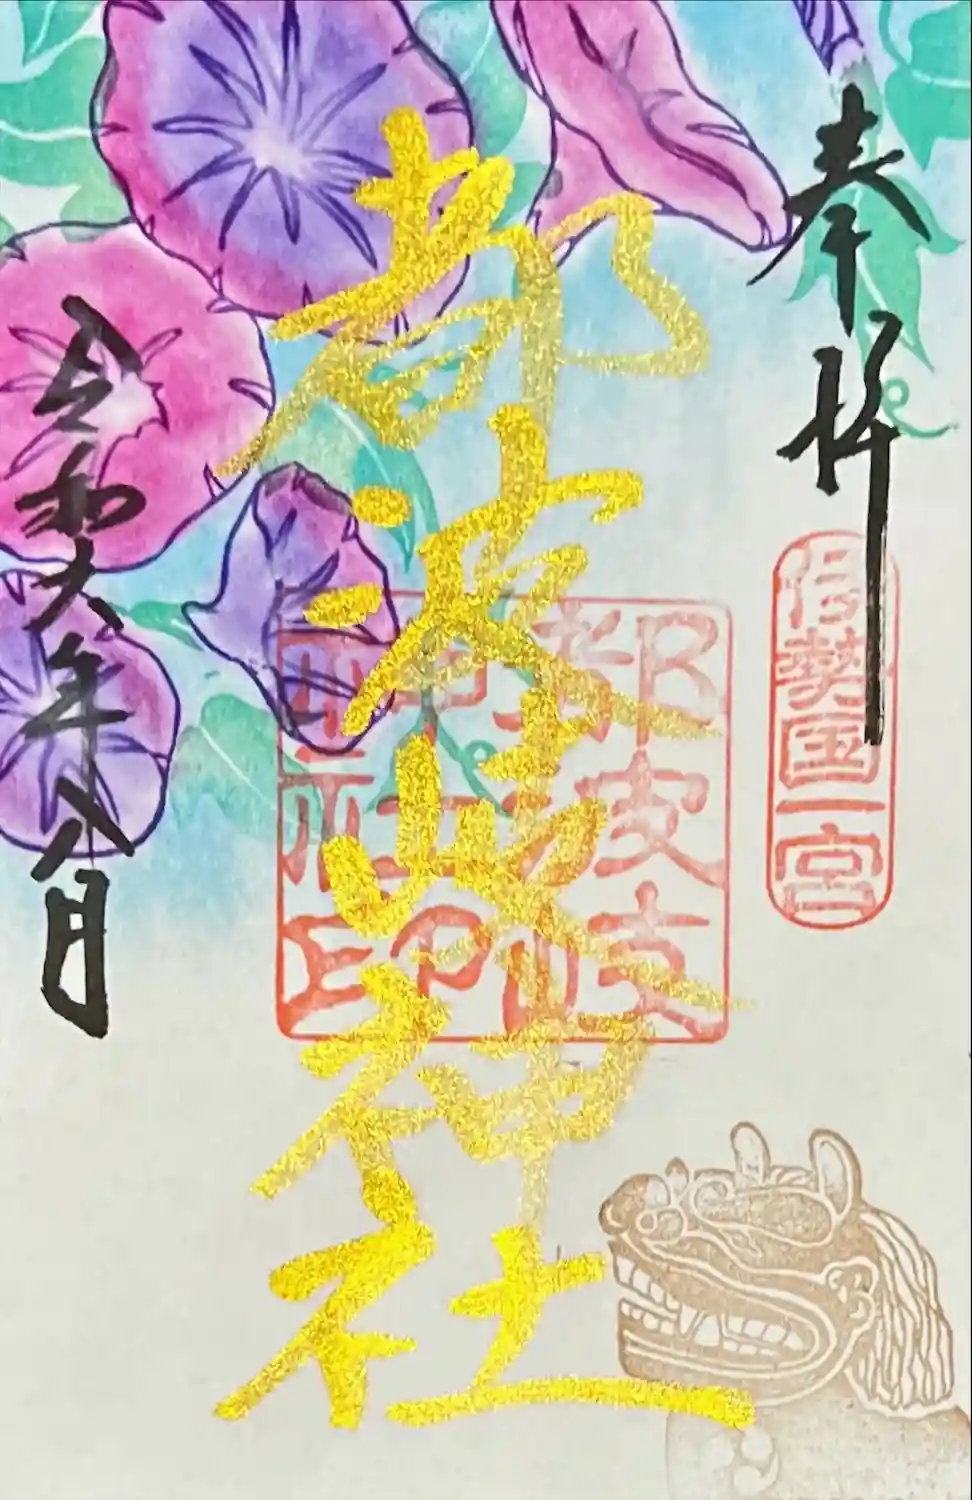 奉拝
伊勢国一宮
都波岐神社
都波岐
神社印
令和六年八月